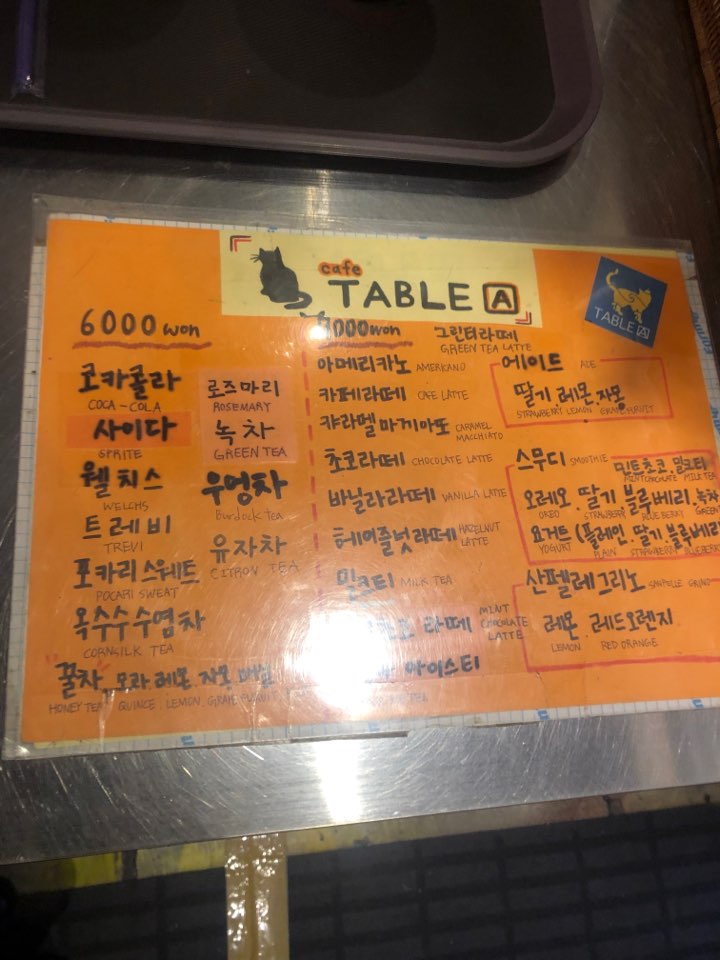 cafe
TABLE A
TABLE A
6000 won
코카콜라
COCA-COLA
사이다
SPRITE
웰치스
WELCHS
트레비
TREVI
포카리스웨트
POCARI SWEAT
옥수수수염차
CORNSILK TEA
로즈마리
ROSEMARY
녹차
GREEN TEA
우엉차
Burdock tea
유자차
CITRON TEA
"꿀차" 모과.레몬.자몽
HONEY TEA QUINCE. LEMON. GRAPEFURUIT
000 won
그린티라떼
GREEN TEA LATTE
아메리카노 AMERICANO
카페라떼 CAFE LATTE
캬라멜마끼아또 CARAMEL
MACCHIATO
초코라떼 CHOCOLATE LATTE
바닐라라떼 VANILLA LATTE
헤이즐넛라떼 HAZELNUT
LATTE
밀크티 MILK TEA
라떼 MINT
CHOCOLATE
LATTE
아이스티
TEA
에이드 ADE
딸기.레몬.자몽
STRAWBERRY LEMON GRAPEFRUIT
스무디 SMOOTHIE
민트초코.밀크티
MINTCHOCOLATE MILK TEA
오레오.딸기.블루베리.녹차
OREO STRAWBERRY BLUEBERRY
요거트(플레인.딸기.블루베리
YOGURT PLAIN STRAWBERRY BLUEBERRY
산펠레그리노
레몬 레드오렌지
LEMON RED ORANGE